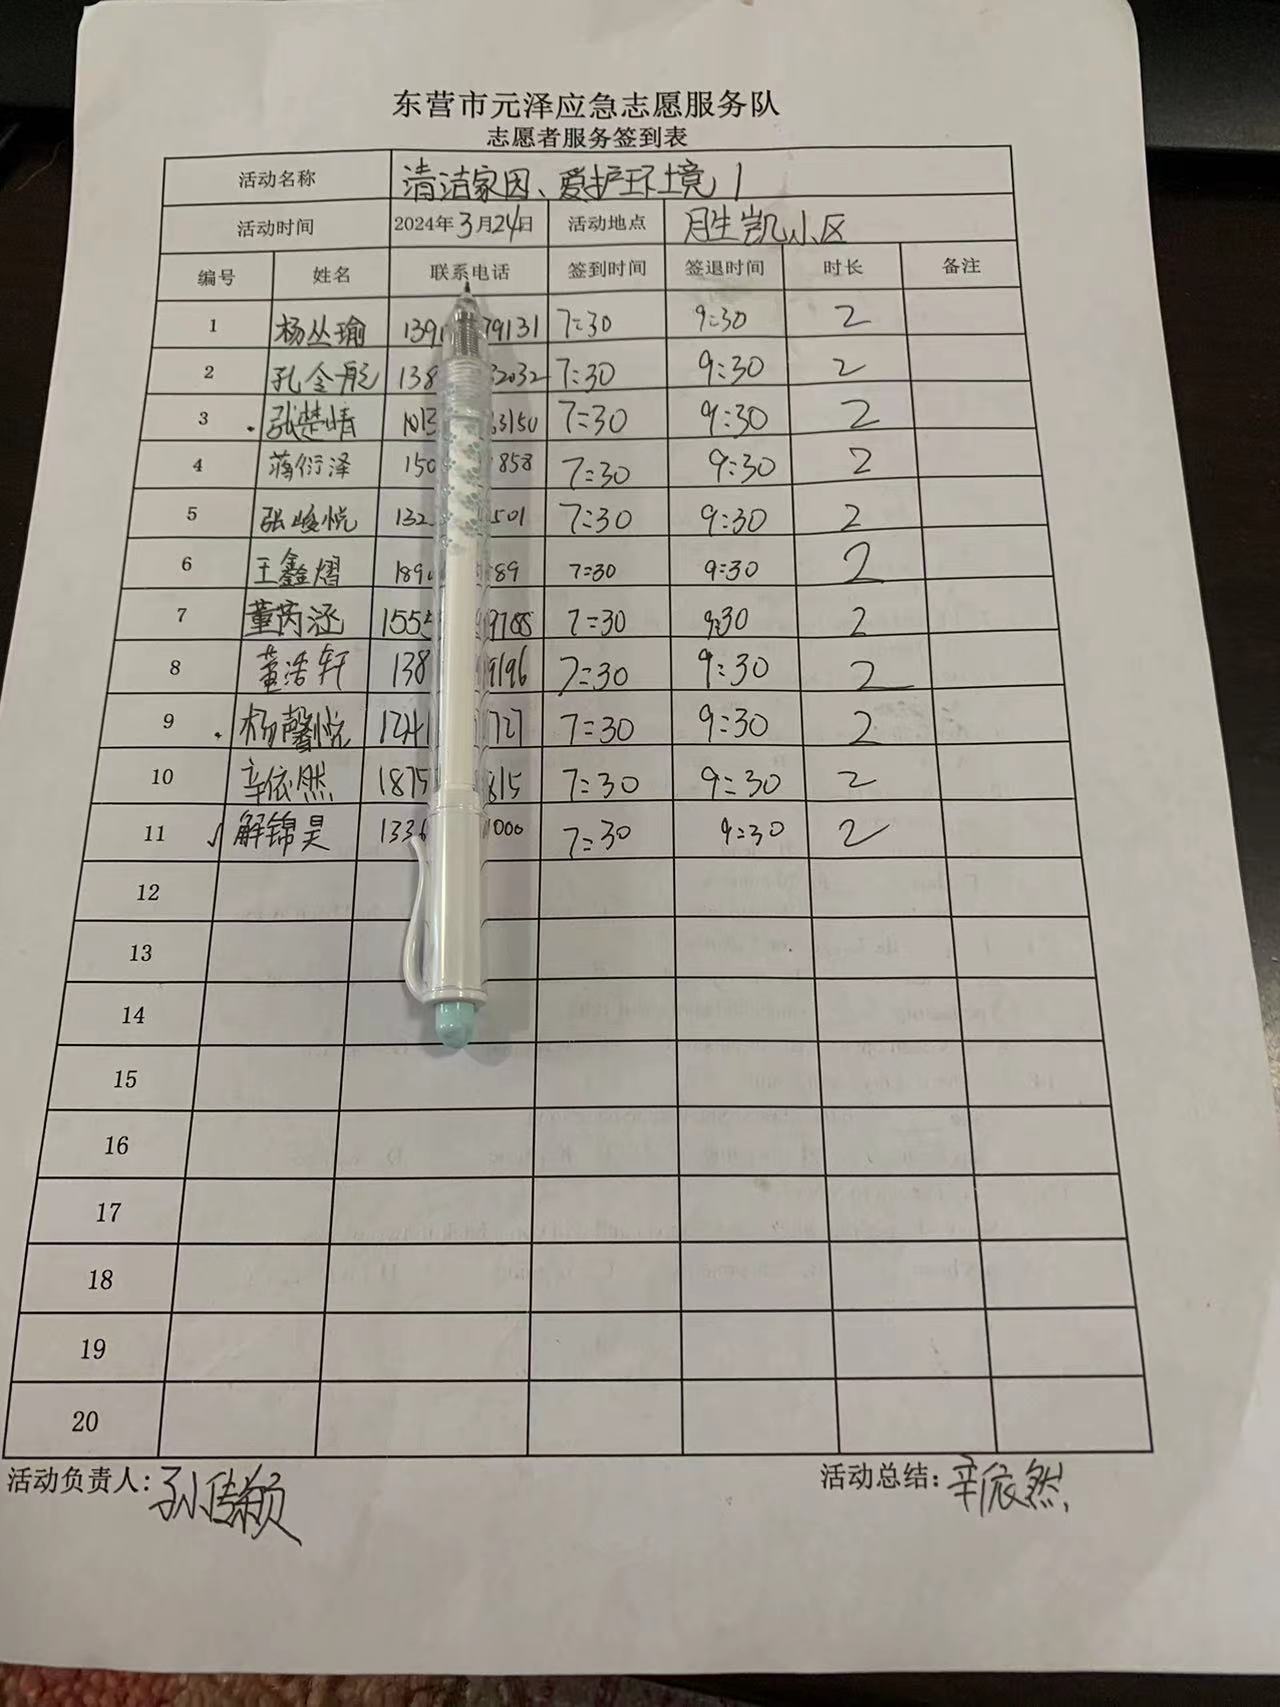 东营市元泽应急志愿服务队
志愿者服务签到表
活动名称 清洁家园、爱护环境 1
活动时间 2024年3月24日 活动地点 胜凯小区
编号 姓名 联系电话 签到时间 签退时间 时长 备注
1 杨丛瑜 139 79131 7:30 9:30 2
2 孔令彤 138 32032 7:30 9:30 2
3 张楚晴 3150 7:30 9:30 2
4 蒋衍泽 150 1858 7:30 9:30 2
5 张峻悦 132 501 7:30 9:30 2
6 王鑫熠 189 89 7:30 9:30 2
7 董芮涵 1555 7:30 9:30 2
8 董浩轩 138 9196 7:30 9:30 2
9 杨馨悦 727 7:30 9:30 2
10 辛依然 1875 815 7:30 9:30 2
11 解锦昊 1336 1000 7:30 9:30 2
12
13
14
15
16
17
18
19
20
活动负责人: 活动总结: 辛依然